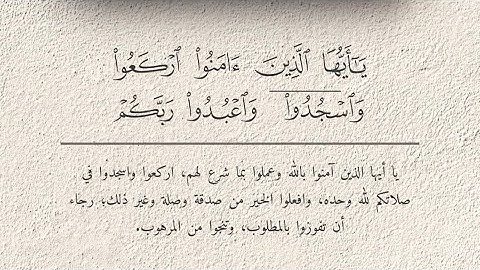 يَـٰٓأَيُّهَا ٱلَّذِينَ ءَامَنُوا۟ ٱرْكَعُوا۟
وَٱسْجُدُوا۟ وَٱعْبُدُوا۟ رَبَّكُمْ
يا أيها الذين آمنوا بالله وعملوا بما شرع لهم، اركعوا واسجدوا في
صلاتكم لله وحده، وافعلوا الخير من صدقة وصلة وغير ذلك؛ رجاء
أن تفوزوا بالمطلوب، وتنجوا من المرهوب.